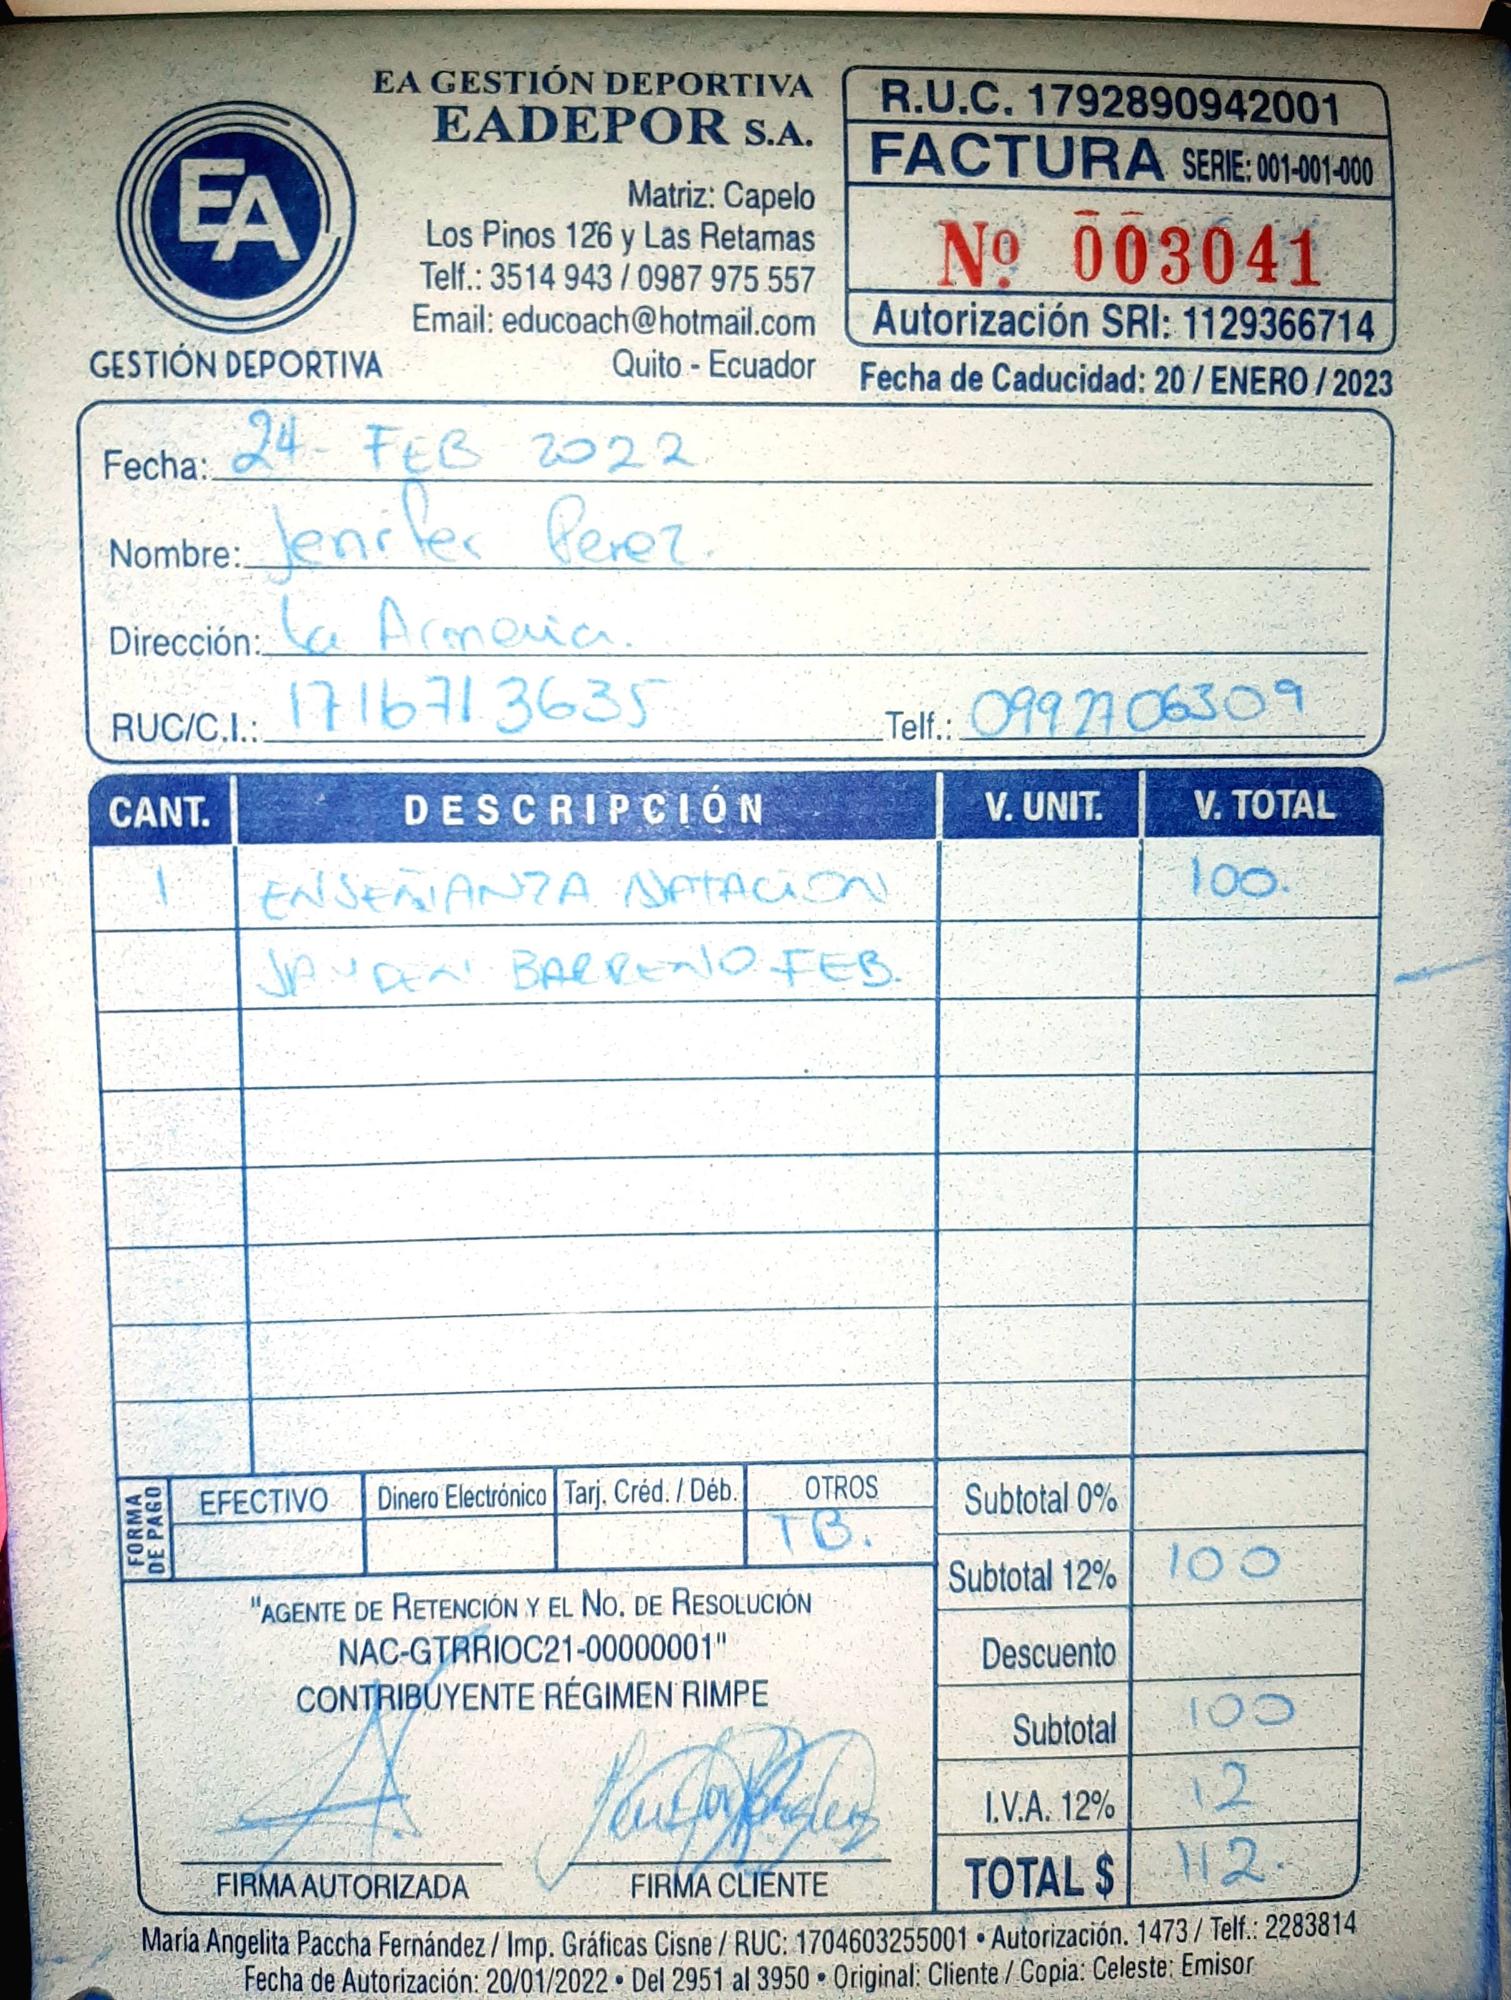 EA GESTIÓN DEPORTIVA
EADEPOR S.A.
EA
GESTIÓN DEPORTIVA
Matriz: Capelo
Los Pinos 126 y Las Retamas
Telf.: 3514 943 / 0987 975 557
Email: educoach@hotmail.com
Quito - Ecuador
R.U.C. 1792890942001
FACTURA SERIE: 001-001-000
Nº 003041
Autorización SRI: 1129366714
Fecha de Caducidad: 20 / ENERO / 2023
Fecha: 24- FEB 2022
Nombre: Jenifer Perez.
Dirección: La Armenia.
RUC/C.I.: 1716713635 Telf.: 0992706309
CANT. DESCRIPCIÓN V. UNIT. V. TOTAL
1 ENSEÑANZA NATACION 100.
JAYDEN BARRENO FEB.
FORMA DE PAGO
EFECTIVO Dinero Electrónico Tarj. Créd. / Déb. OTROS
TB.
Subtotal 0%
Subtotal 12% 100
Descuento
Subtotal 100
I.V.A. 12% 12
TOTAL $ 112.
"AGENTE DE RETENCIÓN Y EL NO. DE RESOLUCIÓN
NAC-GTRRIOC21-00000001"
CONTRIBUYENTE RÉGIMEN RIMPE
FIRMA AUTORIZADA FIRMA CLIENTE
María Angelita Paccha Fernández / Imp. Gráficas Cisne / RUC: 1704603255001 • Autorización. 1473 / Telf.: 2283814
Fecha de Autorización: 20/01/2022 • Del 2951 al 3950 • Original: Cliente / Copia: Celeste: Emisor